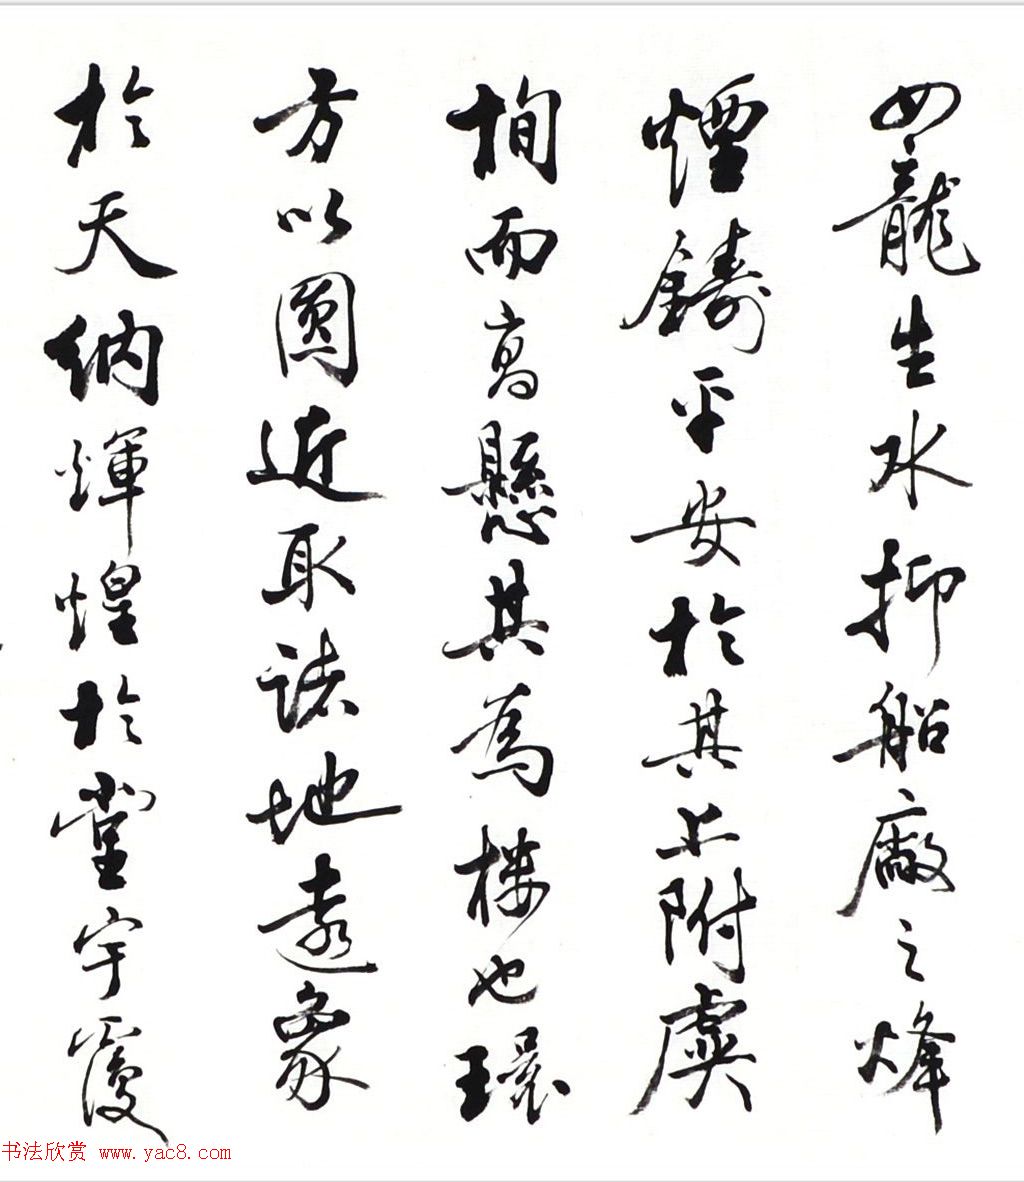 如龍生水抑船廠之烽
煙鑄平安於其上附虞
栒而高懸其為樓也環
方以圓近取諸地遠象
於天納輝煌於堂宇覆
书法欣赏 www.yac8.com